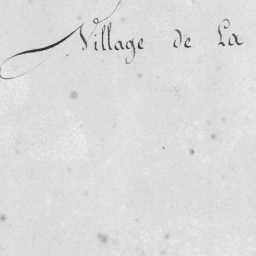 Village de La